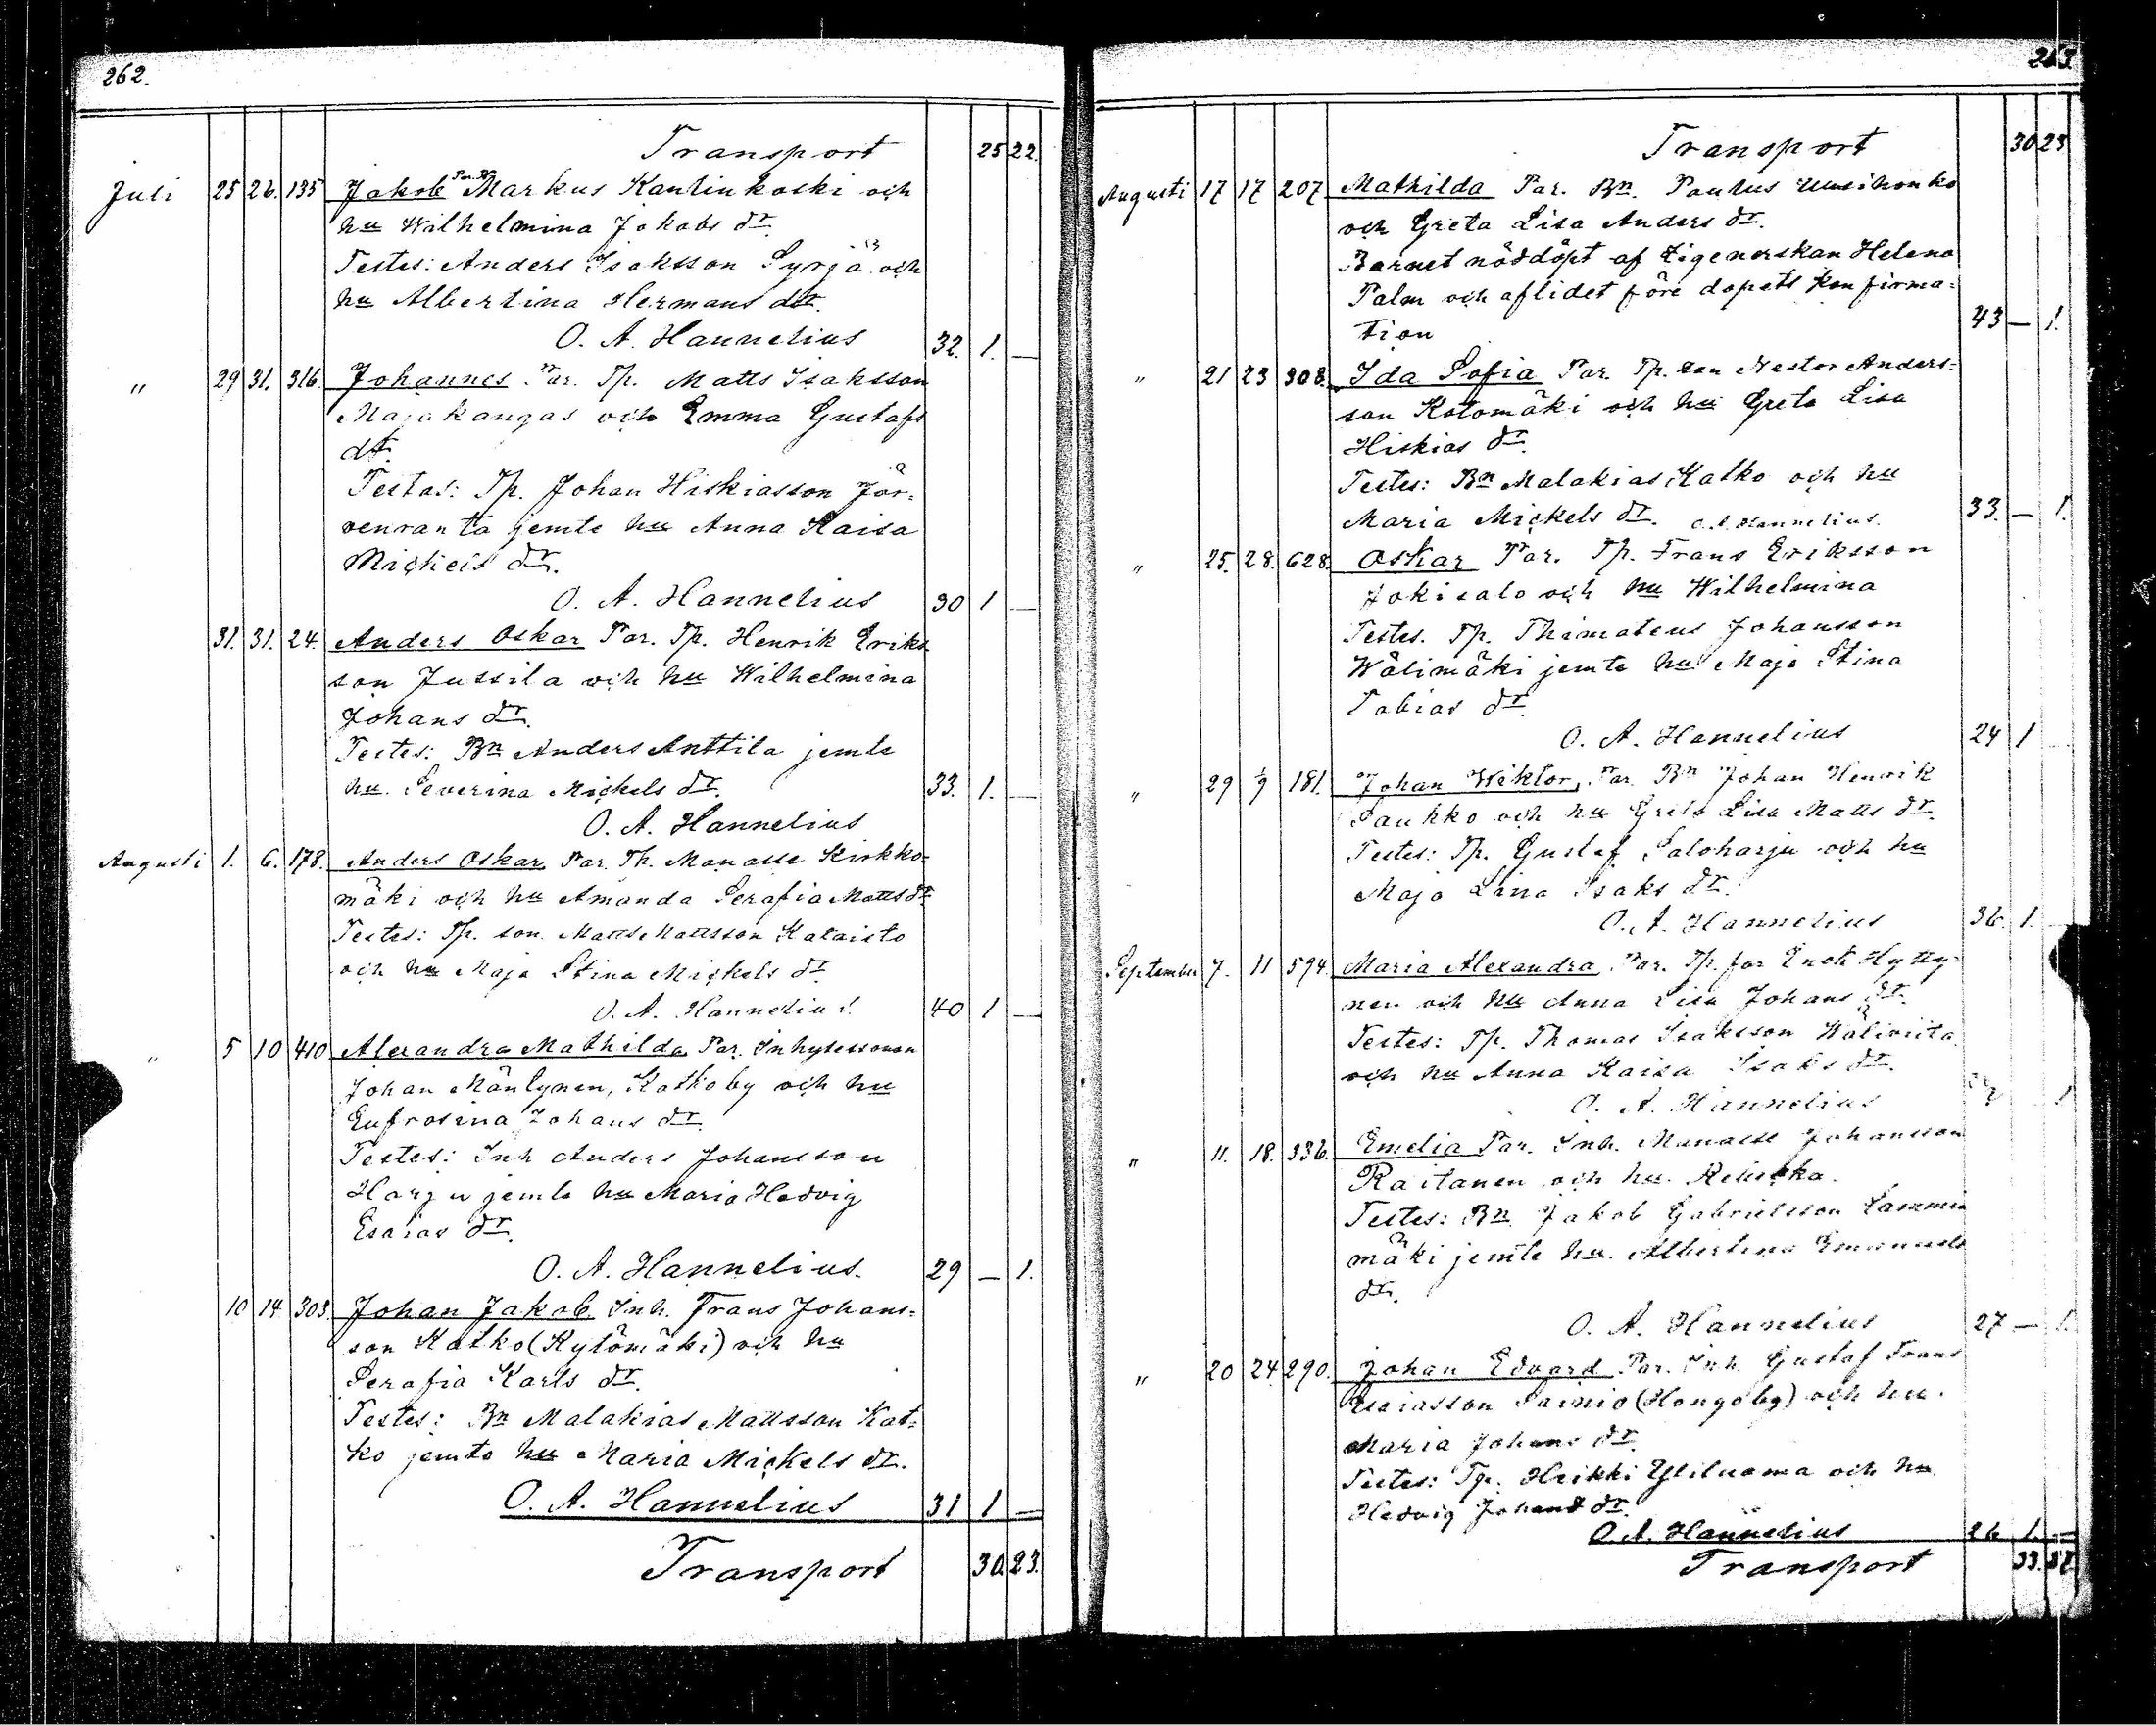 262.
Transport 25 22.
Juli 25 26. 135 Jakob Par. Bn Markus Kantinkoski och
hu Wilhelmina Jakobs dr.
Testes: Anders Isaksson Syrjä och
hu Albertina Hermans dr.
O. A. Hannelius 32. 1. —
" 29 31. 316. Johannes Par. Tp. Matts Isaksson
Majakangas och Emma Gustafs
dr.
Testes: Tp. Johan Hiskiasson Jär=
venranta jemte hu Anna Kaisa
Mickels dr.
O. A. Hannelius 30 1 —
31. 31. 24. Anders Oskar Par. Tp. Henrik Eriks
son Jussila och hu Wilhelmina
Johans dr.
Testes: Bn Anders Anttila jemte
hu. Severina Mickels dr. 33. 1. —
O. A. Hannelius
Augusti 1. 6. 178. Anders Oskar Par. Th. Manasse Kirkko=
mäki och hu Amanda Serafia Matts dr
Testes: Tp. son Matts Mattsson Kataisto
och hu Maja Stina Mickels dr
O. A. Hannelius. 40 1 —
" 5 10 410 Alexandra Mathilda Par. Inhysessonen
Johan Mäntynen, Katkoby och hu
Eufrosina Johans dr
Testes: Inh Anders Johansson
Harju jemte hu Maria Hedvig
Esaias dr.
O. A. Hannelius. 29 — 1.
10 14 303. Johan Jakob Inh. Frans Johans=
son Katko (Kytömäki) och hu
Serafia Karls dr.
Testes: Bn Malakias Mattsson Kat=
ko jemte hu Maria Mickels dr.
O. A. Hannelius 31 1 —
Transport 30. 23.
Transport 30 23
Augusti 17 17 207 Mathilda Par. Bn. Paulus Uusihonko
och Greta Lisa Anders dr.
Barnet nöddöpt af Zigenerskan Helena
Palm och aflidet före dopets konfirma=
tion 43 — 1.
" 21 23 308. Ida Sofia Par. Tp. son Nestor Anders=
son Kotomäki och hu Greta Lisa
Hiskias dr.
Testes: Bn Malakias Katko och hu
Maria Mickels dr. O. A. Hannelius. 33. — 1.
" 25. 28. 628. Oskar Par. Tp. Frans Eriksson
Jokisalo och hu Wilhelmina
Testes. Tp. Thimoteus Johansson
Wälimäki jemte hu Maja Stina
Tobias dr.
O. A. Hannelius 24 1
" 29 1/9 181. Johan Wiktor, Par. Bn Johan Henrik
Saukko och hu Greta Lisa Matts dr.
Testes: Tp. Gustaf Saloharju och hu
Maja Lina Isaks dr.
O. A. Hannelius 36. 1.
September 7. 11 594. Maria Alexandra Par. Tp. far Enok Hyny=
nen och hu Anna Lisa Johans dr.
Testes: Tp. Thomas Isaksson Wäliviita
och hu Anna Kaisa Isaks dr.
O. A. Hannelius
" 11. 18. 336. Emelia Par. Inh. Manasse Johansson
Raitanen och hu.
Testes: Bn. Jakob Gabrielsson Lammin
mäki jemte hu. Albertina Emanuels
dr.
O. A. Hannelius 27 — 1.
" 20 24 290. Johan Edvard Par. Inh. Gustaf Frans
Esaiasson Sainio (Hongoby) och hu.
Maria Johans dr.
Testes: Tp. Heikki Yliluoma och hu.
Hedvig Johans dr.
O. A. Hannelius 26 1. —
Transport 33.